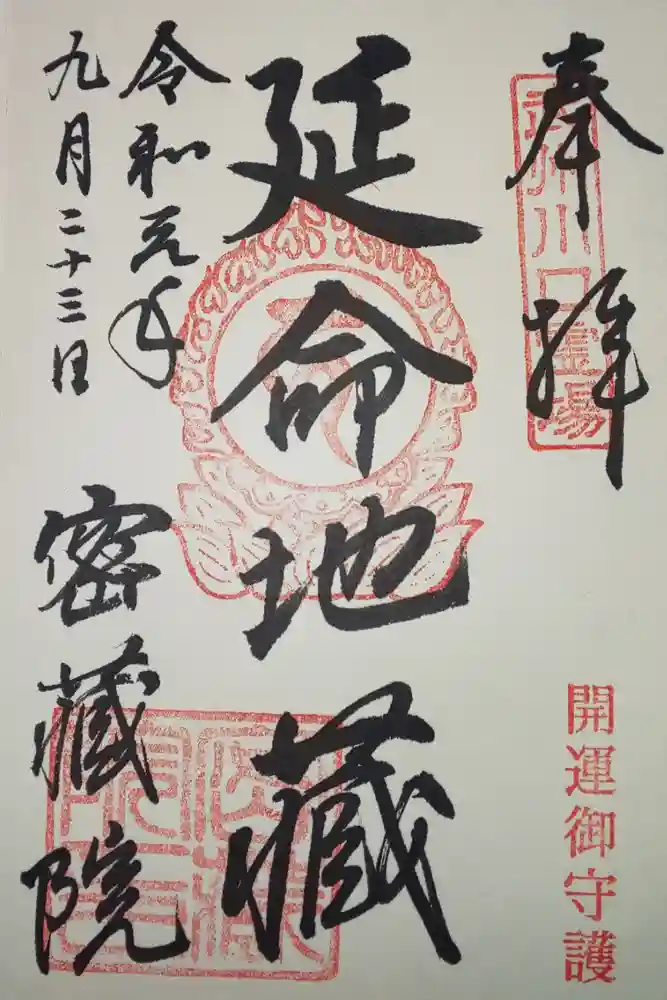 奉拝
武州川口霊場
開運御守護
延命地蔵
令和元年
九月二十三日
密蔵院